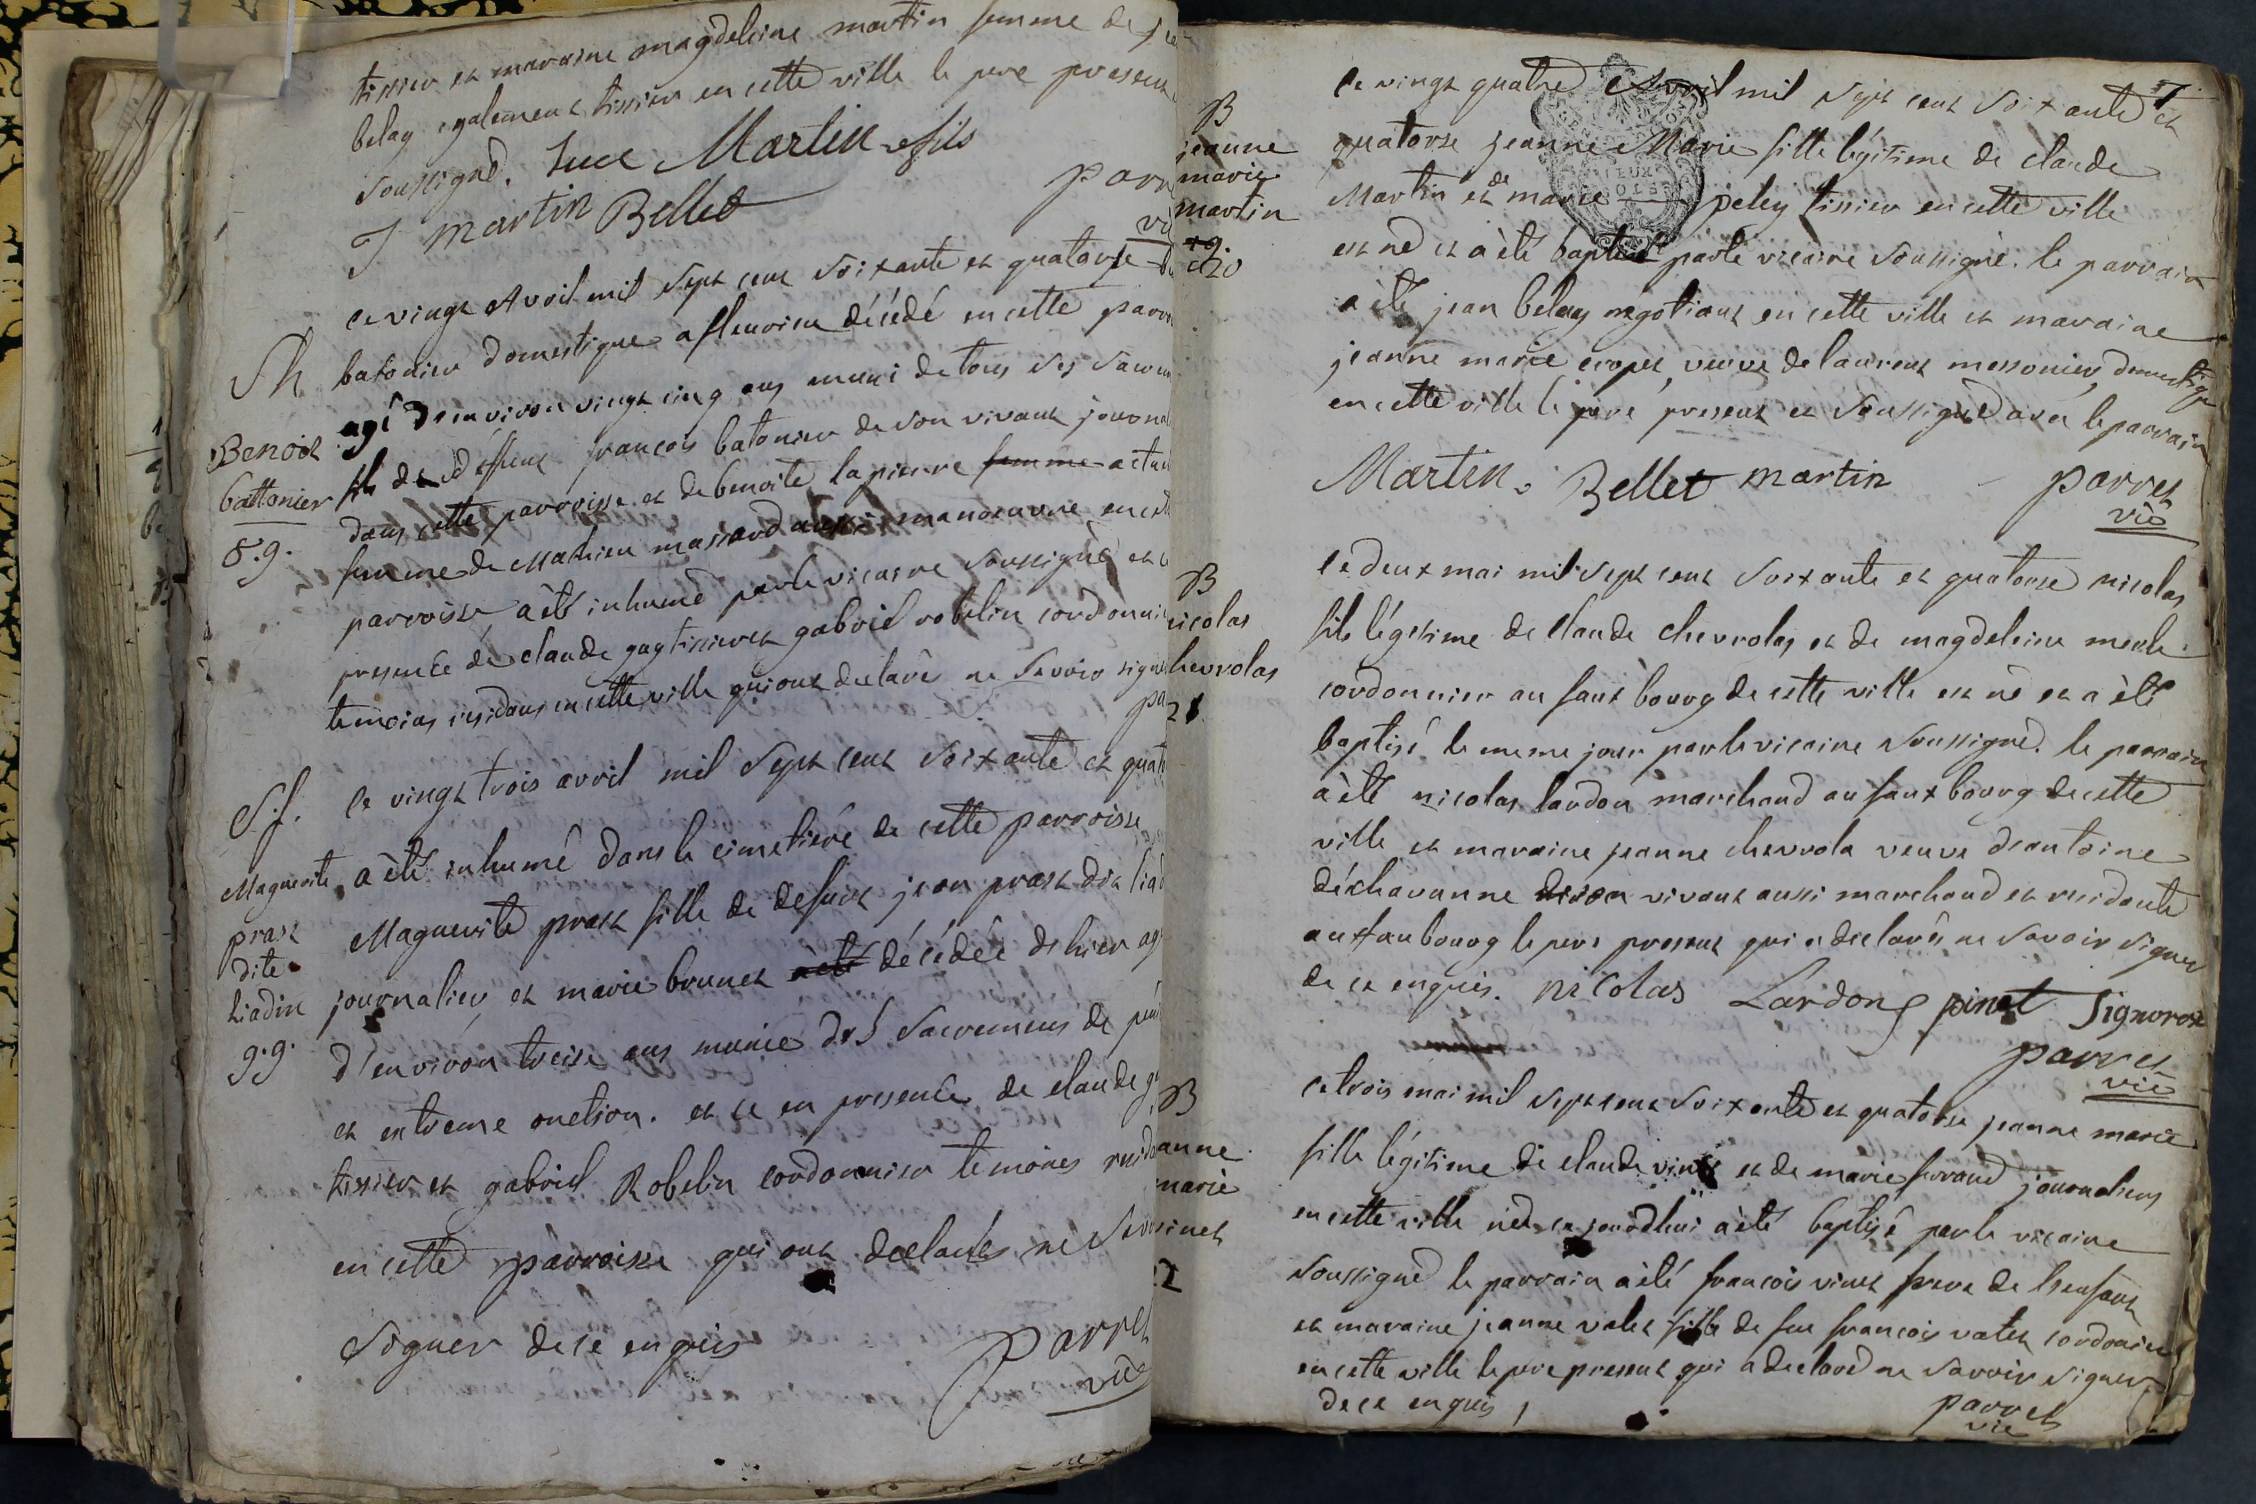 tissier et maraine magdeleine martin femme de
belay egalement tissier en cette ville le pere present
soussigné. Luce Martin fils
J martin Bellet
parr
vi
ce vingt Avril mil sept cent soixante et quatorze
batonier domestique a fleurieu décédé en cette parr
agé denviron vingt cinq ans muni de tous ses sacrem
fils de défunt francois batonier de son vivant journal
dans cette parroisse et de benoite lapierre femme actue
femme de Mathieu massard aussi manoeuvre en cett
parroisse a èté inhumé par le vicaire soussigné et
presence de claude gay tissier et gabriel robelin cordonni
temoins residans en cette ville qui ont declaré ne scavoir signe
pa
Sh
Benoit
battonier
8. g.
ce vingt trois avril mil sept cent soixante et quat
a èté inhumé dans le cimetiere de cette parroisse
Marguerite prast fille de defunt jean prast dit liad
journalier et marie brunet a été décédée dhier ag
d'environ treise ans munie des sacremens de péni
et extreme onction. et ce en presence de claude g
tissier et gabriel Robelin cordonnier temoins resid
en cette parroisse qui ont declarés ne sca
signer de ce enquis
parret
vic
S.f.
Marguerite
prast
dite
liadin
9. g.
7
ce vingt quatre Avril mil sept cent soixante et
quatorse jeanne Marie fille légitime de claude
Martin et de marie peley tissier en cette ville
est né et a èté baptisé par le vicaire soussigné. le parrain
a èté jean belay négotiant en cette ville et maraine
jeanne marie cropet, veuve de laurent messonier, domestique
en cette ville le pere present et soussigné avec le parrain
Martin. Bellet martin
parret
vic
B
jeanne
marie
martin
19.
20
le deux mai mil sept cent soixante et quatorse nicolas
fils légitime de claude chevrolas et de magdeleine merle
cordonnier au faux bourg de cette ville est né et a èté
baptisé le meme jour par le vicaire soussigné. le parrain
a èté nicolas lardon marchand au faux bourg de cette
ville et maraine jeanne chevrola veuve d'antoine
déchavanne de son vivant aussi marchand et residante
au faubourg le pere present qui a declaré ne savoir signer
de ce enquis. nicolas Lardon pinet Signoret
parret
vic
B
nicolas
hevrolas
21
ce trois mai mil sept cent soixante et quatorse jeanne marie
fille légitime de claude vinet et de marie ferrand journaliers
en cette ville née ce jourdhui a èté baptisé par le vicaire
soussigné le parrain a èté francois vinet frere de l'enfant
et maraine jeanne valet fille de feu francois vatet cordonier
en cette ville le pere present qui a declaré ne savoir signer
de ce enquis,
parret
vic
B
anne
marie
inet
22